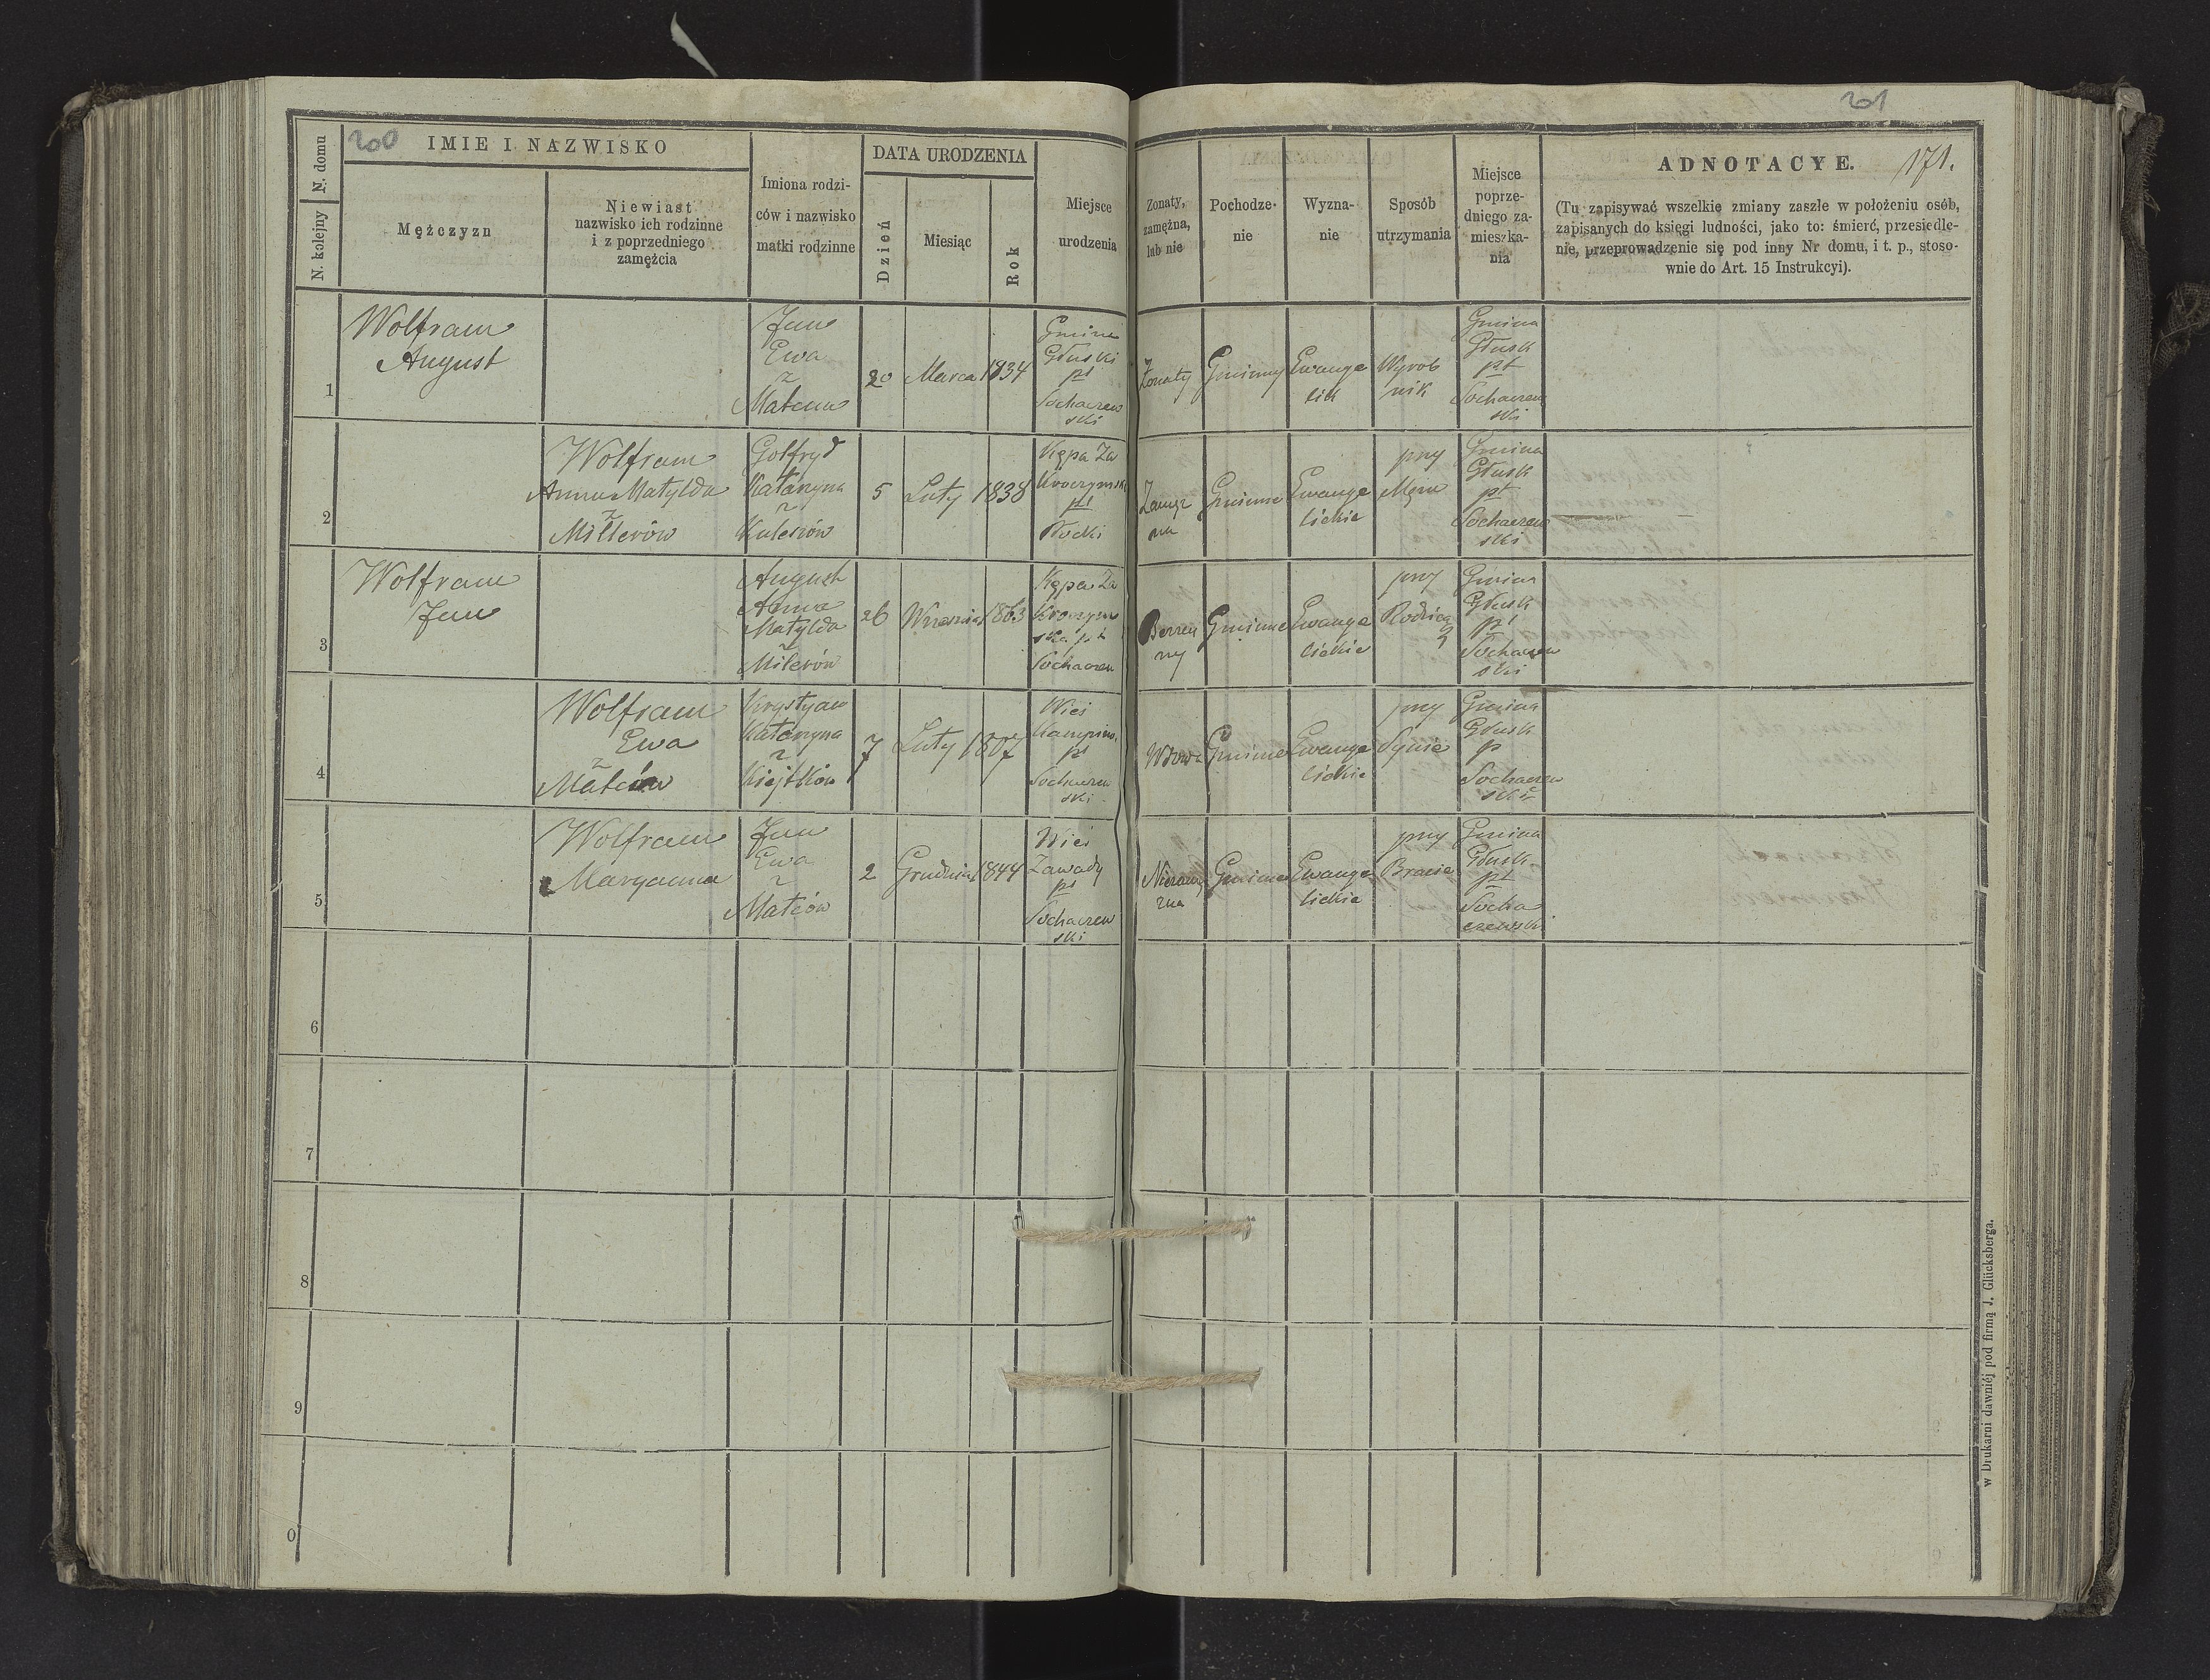 200
201
171.
N. kolejny
N. domu
IMIE I NAZWISKO
Mężczyzn
Niewiast
nazwisko ich rodzinne
i z poprzedniego
zamężcia
Imiona rodzi-
ców i nazwisko
matki rodzinne
DATA URODZENIA
Dzień
Miesiąc
Rok
Miejsce
urodzenia
Żonaty,
zamężna,
lub nie
Pochodze-
nie
Wyzna-
nie
Sposób
utrzymania
Miejsce
poprze-
dniego za-
mieszka-
nia
ADNOTACYE.
(Tu zapisywać wszelkie zmiany zaszłe w położeniu osób,
zapisanych do księgi ludności, jako to: śmierć, przesiedle-
nie, przeprowadzenie się pod inny Nr domu, i t. p., stoso-
wnie do Art. 15 Instrukcyi).
1
Wolfram
August
Jan
Ewa
z
20
Marca
1834
Gmina
Głuski
pt
Sochaczew
ski
Żonaty
Gminny
Ewange
lik
Wyrob
nik
Gmina
Głusk
pt
Sochaczew
ski
2
Wolfram
Anna Matylda
z
Millerów
Golfryd
Katarzyna
z
Kulesiów
5
Luty
1838
Kępa Za
pt
Zamęż
na
Gminne
Ewange
lickie
przy
Mężu
Gmina
Głusk
pt
Sochaczew
ski
3
Wolfram
Jan
August
Anna
Matylda
z
Milerów
26
Września
1863
Kępa Za
pt
Sochaczew
Bezżen
ny
Gminne
Ewange
lickie
przy
Gmina
Głusk
pt
Sochaczew
ski
4
Wolfram
Ewa
z
Matców
Krystyan
Katarzyna
z
7
Luty
1807
Wieś
Kampinos
pt
Sochaczew
ski
Wdowa
Gminne
Ewange
lickie
przy
Synie
Gmina
Głusk
p
Sochaczew
ski
5
Wolfram
Maryanna
Jan
Ewa
z
Matców
2
Grudnia
1844
Wieś
Zawady
pt
Sochaczew
ski
Niezamę
żna
Gminne
Ewange
lickie
przy
Bracie
Gmina
Głusk
pt
Socha
czewski
6
7
8
9
0
w Drukarni dawniéj pod firmą J. Glücksberga.